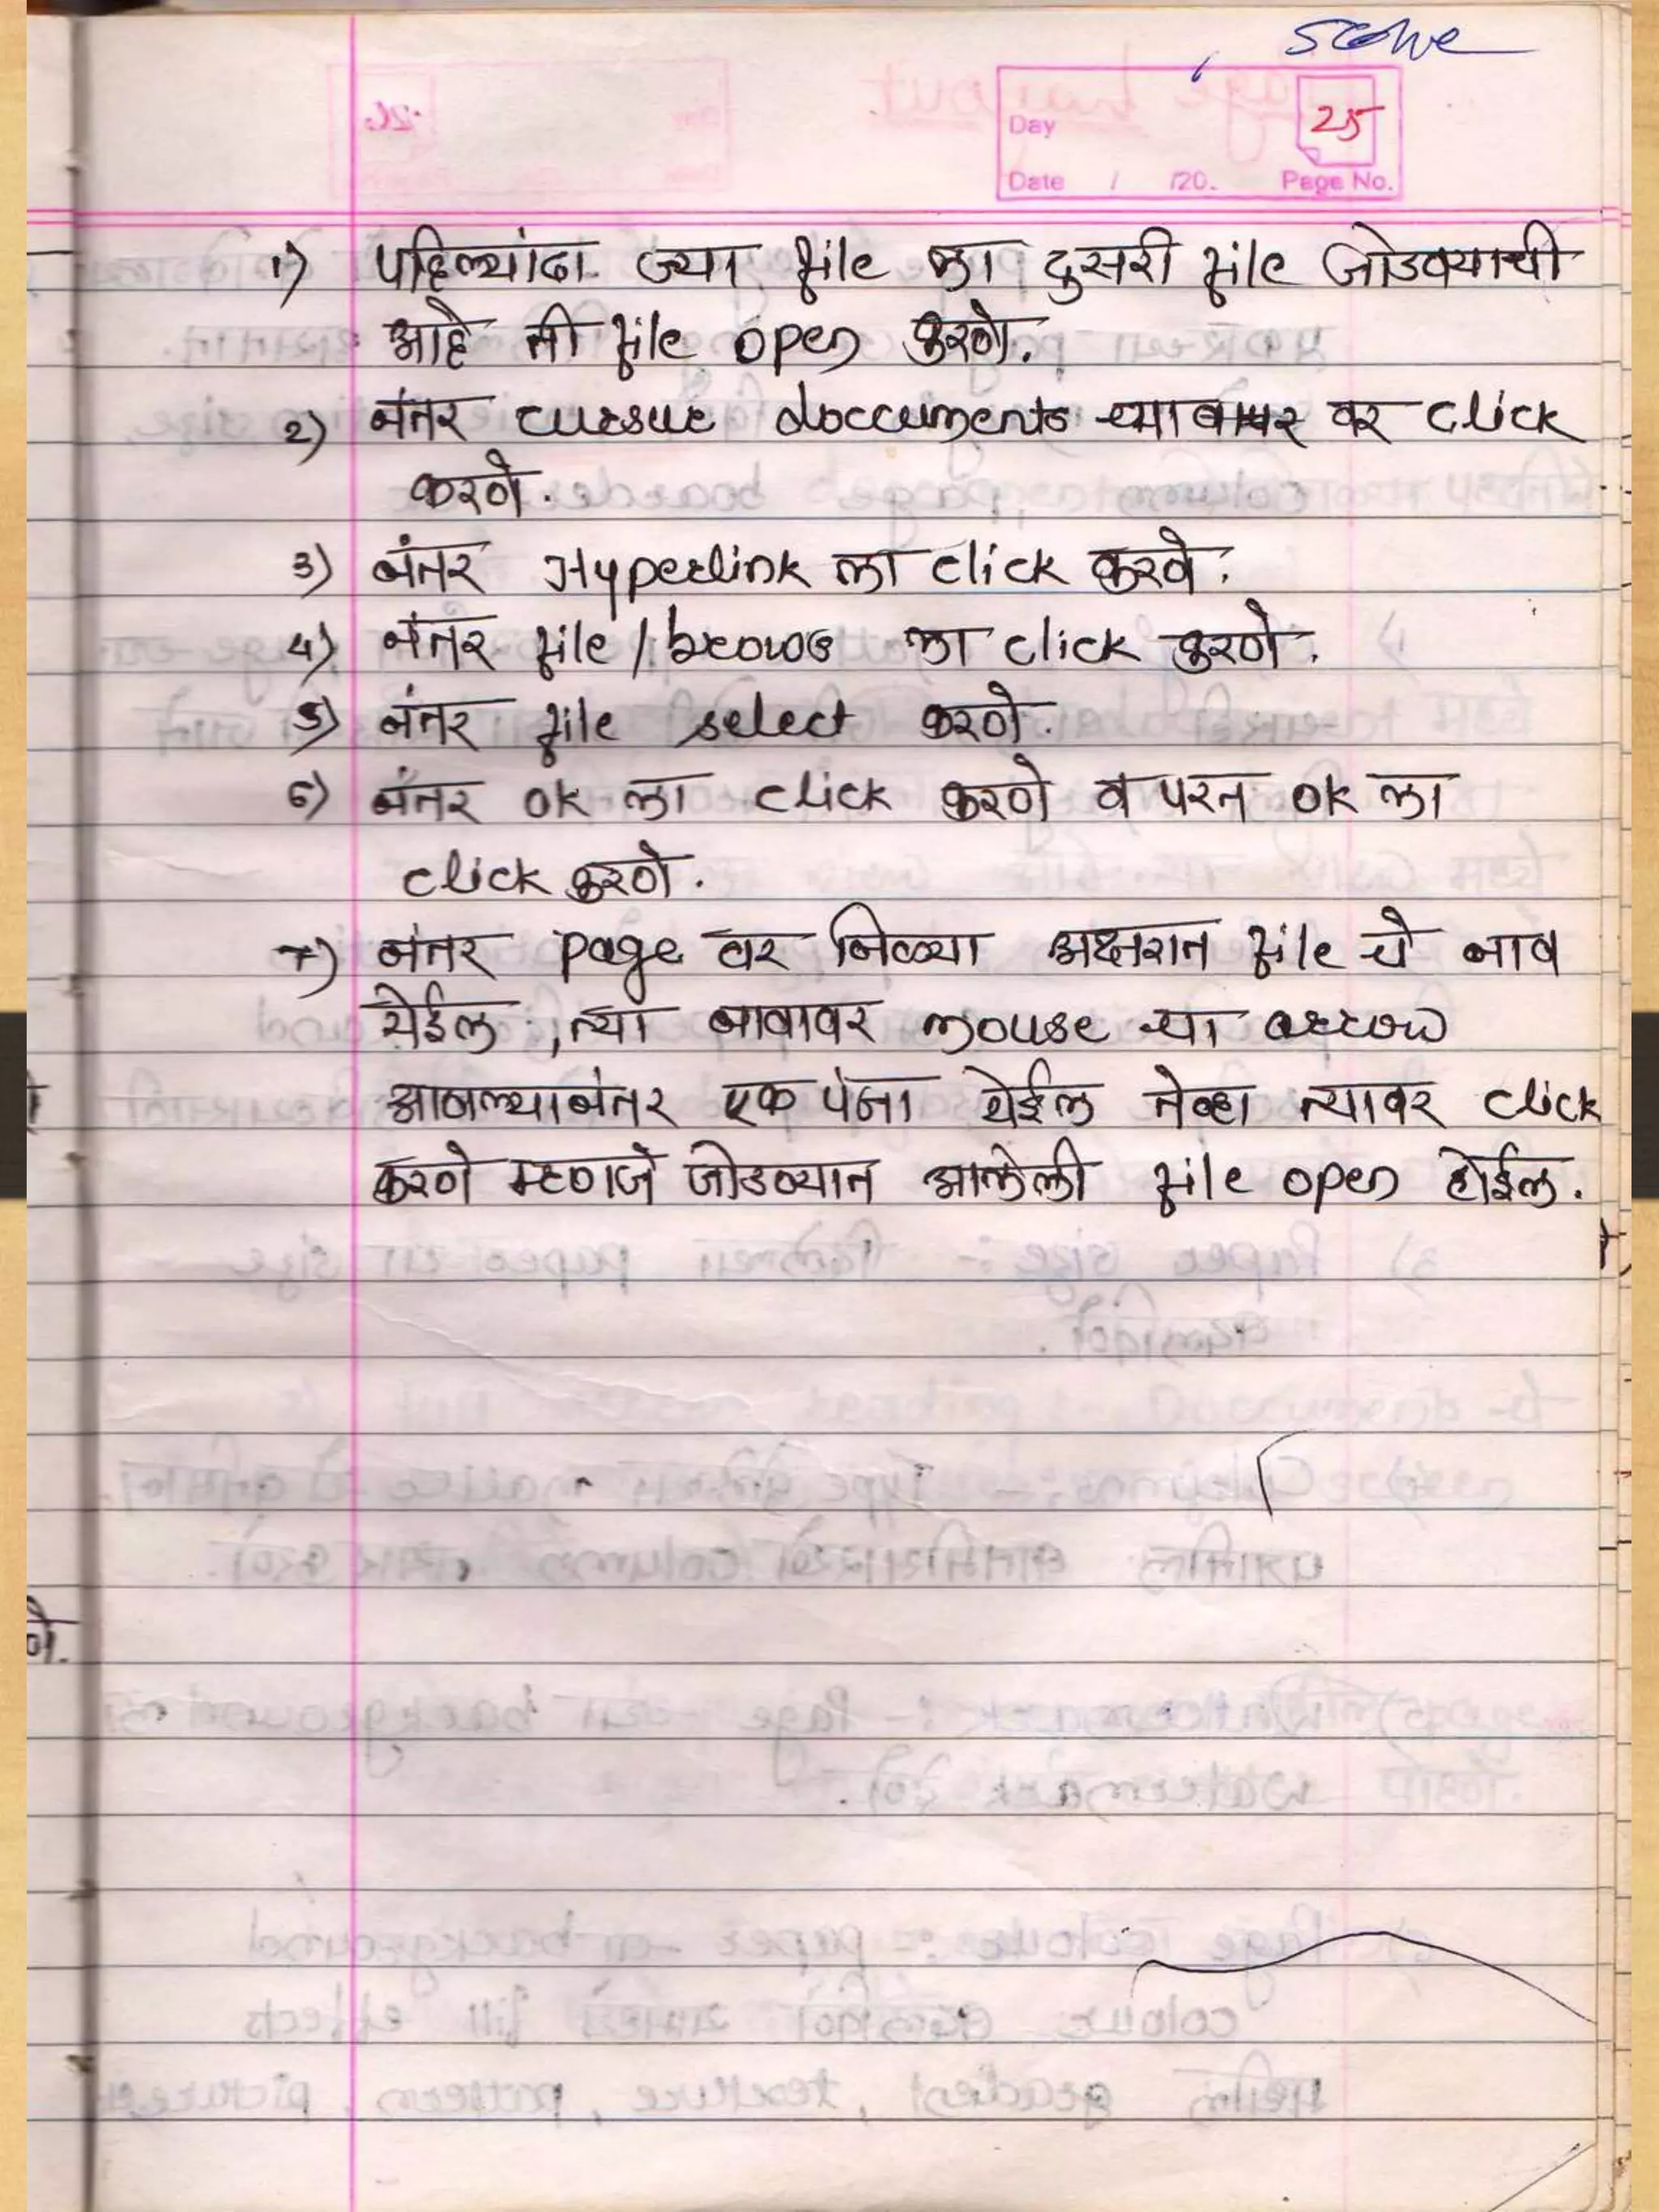 Day
25
Date / /20. Page No.
1) पहिल्यांदा ज्या file ला दुसरी file जोडवयाची
आहे ती file open करणे.
2) नंतर cursur doccuments च्या वर click
करणे.
3) नंतर Hyperlink ला click करवे.
4) नंतर file / brows ला click करणे.
5) नंतर file select करणे.
6) नंतर ok ला click करणे व परत ok ला
click करणे.
7) नंतर page वर निळ्या अक्षरात file चे नाव
येईल, त्या नावावर mouse चा arrow
आणल्यानंतर एक पंजा येईल तेव्हा त्यावर click
करणे म्हणजे जोडण्यात आलेली file open होईल.